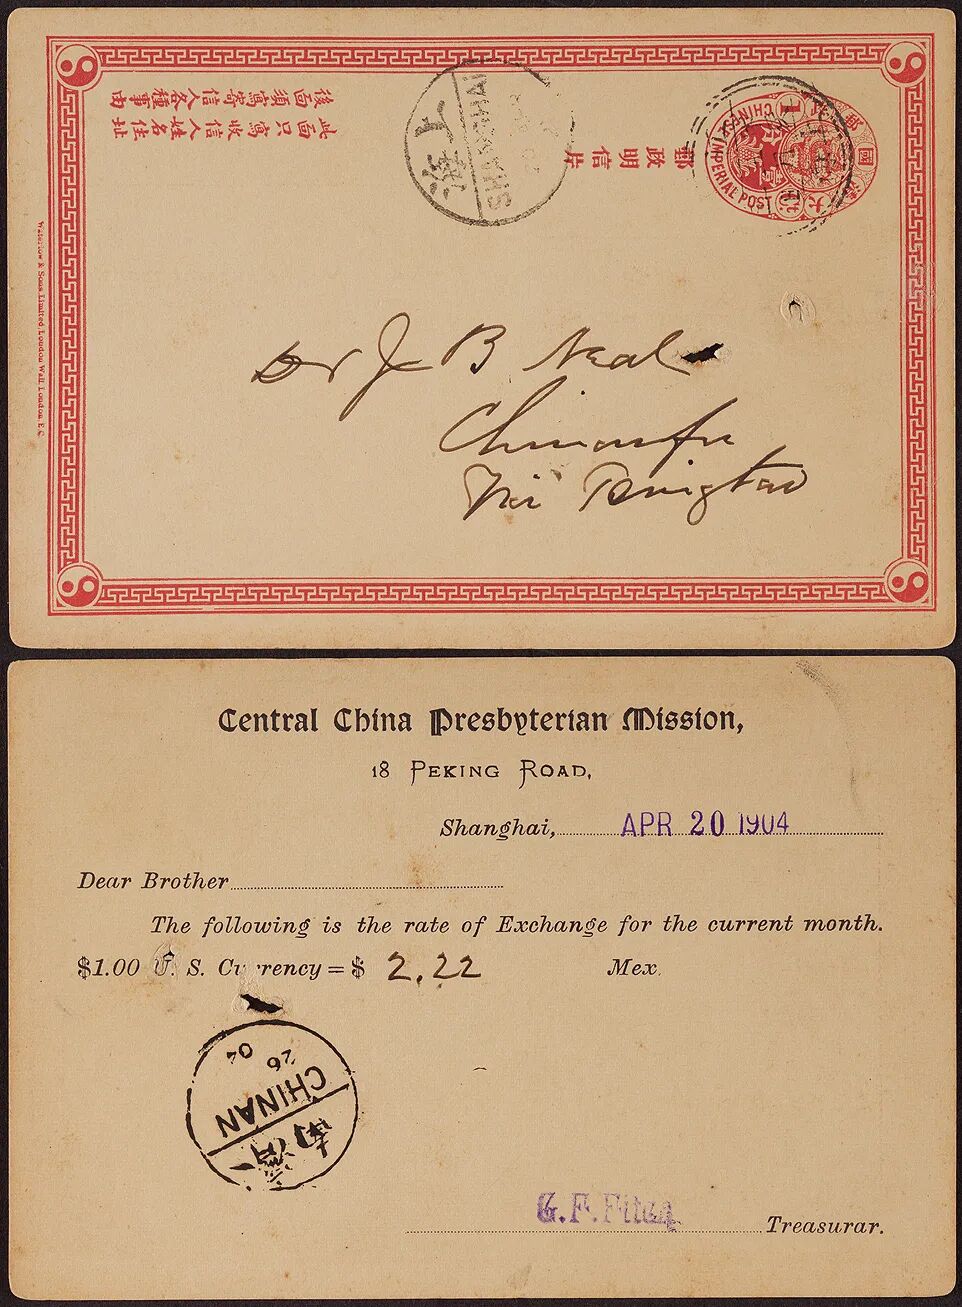 後面須寫寄信人各種事由
此面只寫收信人姓名住址
上海
SHANGHAI
郵政明信片
大清國郵政
CHINESE IMPERIAL POST
壹分
Waterlow & Sons Limited London Wall London E.C.
Dr J B Neal
Chinanfu
Via Tsingtao
Central China Presbyterian Mission,
18 PEKING ROAD,
Shanghai, APR 20 1904
Dear Brother
The following is the rate of Exchange for the current month.
$1.00 U. S. Currency = $ 2.22 Mex.
26 04
CHINAN
濟南
G. F. Fitch
Treasurar.